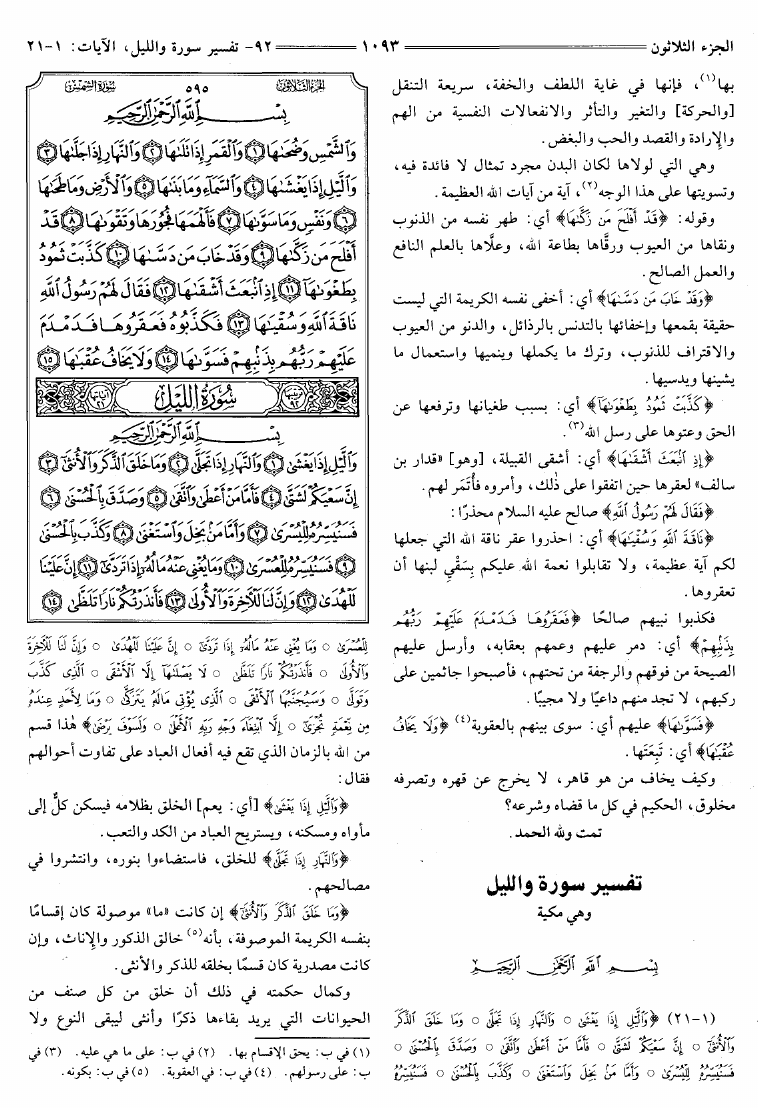 الجزء الثلاثون
١٠٩٣
٩٢- تفسير سورة والليل، الآيات: ١-٢١
بها(١)، فإنها في غاية اللطف والخفة، سريعة التنقل
[والحركة] والتغير والتأثر والانفعالات النفسية من الهم
والإرادة والقصد والحب والبغض.
وهي التي لولاها لكان البدن مجرد تمثال لا فائدة فيه،
وتسويتها على هذا الوجه(٢)، آية من آيات الله العظيمة.
وقوله: ﴿قَدْ أَفْلَحَ مَن زَكَّىٰهَا﴾ أي: طهر نفسه من الذنوب
ونقاها من العيوب ورقَّاها بطاعة الله، وعلَّاها بالعلم النافع
والعمل الصالح.
﴿وَقَدْ خَابَ مَن دَسَّىٰهَا﴾ أي: أخفى نفسه الكريمة التي ليست
حقيقة بقمعها وإخفائها بالتدنس بالرذائل، والدنو من العيوب
والاقتراف للذنوب، وترك ما يكملها وينميها واستعمال ما
يشينها ويدسيها.
﴿كَذَّبَتْ ثَمُودُ بِطَغْوَىٰهَا﴾ أي: بسبب طغيانها وترفعها عن
الحق وعتوها على رسل الله(٣).
﴿إِذِ ٱنۢبَعَثَ أَشْقَىٰهَا﴾ أي: أشقى القبيلة، [وهو] «قدار بن
سالف» لعقرها حين اتفقوا على ذٰلك، وأمروه فأْتَمَر لهم.
﴿فَقَالَ لَهُمْ رَسُولُ ٱللَّهِ﴾ صالح عليه السلام محذرا:
﴿نَاقَةَ ٱللَّهِ وَسُقْيَٰهَا﴾ أي: احذروا عقر ناقة الله التي جعلها
لكم آية عظيمة، ولا تقابلوا نعمة الله عليكم بِسَقْيِ لبنها أن
تعقروها.
فكذبوا نبيهم صالحًا ﴿فَعَقَرُوهَا فَدَمْدَمَ عَلَيْهِمْ رَبُّهُم
بِذَنۢبِهِمْ﴾ أي: دمر عليهم وعمهم بعقابه، وأرسل عليهم
الصيحة من فوقهم والرجفة من تحتهم، فأصبحوا جاثمين على
ركبهم، لا تجد منهم داعيًا ولا مجيبًا.
﴿فَسَوَّىٰهَا﴾ عليهم أي: سوى بينهم بالعقوبة(٤) ﴿وَلَا يَخَافُ
عُقْبَٰهَا﴾ أي: تَبِعَتَها.
وكيف يخاف من هو قاهر، لا يخرج عن قهره وتصرفه
مخلوق، الحكيم في كل ما قضاه وشرعه؟
تمت ولله الحمد.
تفسير سورة والليل
وهي مكية
بِسْمِ ٱللَّهِ ٱلرَّحْمَٰنِ ٱلرَّحِيمِ
(١-٢١) ﴿وَٱلَّيْلِ إِذَا يَغْشَىٰ ○ وَٱلنَّهَارِ إِذَا تَجَلَّىٰ ○ وَمَا خَلَقَ ٱلذَّكَرَ
وَٱلْأُنثَىٰٓ ○ إِنَّ سَعْيَكُمْ لَشَتَّىٰ ○ فَأَمَّا مَنْ أَعْطَىٰ وَٱتَّقَىٰ ○ وَصَدَّقَ بِٱلْحُسْنَىٰ ○
فَسَنُيَسِّرُهُۥ لِلْيُسْرَىٰ ○ وَأَمَّا مَنۢ بَخِلَ وَٱسْتَغْنَىٰ ○ وَكَذَّبَ بِٱلْحُسْنَىٰ ○ فَسَنُيَسِّرُهُۥ
الجزء الثلاثون
٥٩٥
سورة الشمس
بِسْمِ ٱللَّهِ ٱلرَّحْمَٰنِ ٱلرَّحِيمِ
وَٱلشَّمْسِ وَضُحَىٰهَا ١ وَٱلْقَمَرِ إِذَا تَلَىٰهَا ٢ وَٱلنَّهَارِ إِذَا جَلَّىٰهَا ٣
وَٱلَّيْلِ إِذَا يَغْشَىٰهَا ٤ وَٱلسَّمَآءِ وَمَا بَنَىٰهَا ٥ وَٱلْأَرْضِ وَمَا طَحَىٰهَا
٦ وَنَفْسٍ وَمَا سَوَّىٰهَا ٧ فَأَلْهَمَهَا فُجُورَهَا وَتَقْوَىٰهَا ٨ قَدْ
أَفْلَحَ مَن زَكَّىٰهَا ٩ وَقَدْ خَابَ مَن دَسَّىٰهَا ١٠ كَذَّبَتْ ثَمُودُ
بِطَغْوَىٰهَآ ١١ إِذِ ٱنۢبَعَثَ أَشْقَىٰهَا ١٢ فَقَالَ لَهُمْ رَسُولُ ٱللَّهِ
نَاقَةَ ٱللَّهِ وَسُقْيَٰهَا ١٣ فَكَذَّبُوهُ فَعَقَرُوهَا فَدَمْدَمَ
عَلَيْهِمْ رَبُّهُم بِذَنۢبِهِمْ فَسَوَّىٰهَا ١٤ وَلَا يَخَافُ عُقْبَٰهَا ١٥
ترتيبها ٩٢ سُورَةُ اللَّيْلِ آياتها ٢١
بِسْمِ ٱللَّهِ ٱلرَّحْمَٰنِ ٱلرَّحِيمِ
وَٱلَّيْلِ إِذَا يَغْشَىٰ ١ وَٱلنَّهَارِ إِذَا تَجَلَّىٰ ٢ وَمَا خَلَقَ ٱلذَّكَرَ وَٱلْأُنثَىٰٓ ٣
إِنَّ سَعْيَكُمْ لَشَتَّىٰ ٤ فَأَمَّا مَنْ أَعْطَىٰ وَٱتَّقَىٰ ٥ وَصَدَّقَ بِٱلْحُسْنَىٰ ٦
فَسَنُيَسِّرُهُۥ لِلْيُسْرَىٰ ٧ وَأَمَّا مَنۢ بَخِلَ وَٱسْتَغْنَىٰ ٨ وَكَذَّبَ بِٱلْحُسْنَىٰ
٩ فَسَنُيَسِّرُهُۥ لِلْعُسْرَىٰ ١٠ وَمَا يُغْنِى عَنْهُ مَالُهُۥٓ إِذَا تَرَدَّىٰٓ ١١ إِنَّ عَلَيْنَا
لَلْهُدَىٰ ١٢ وَإِنَّ لَنَا لَلْءَاخِرَةَ وَٱلْأُولَىٰ ١٣ فَأَنذَرْتُكُمْ نَارًا تَلَظَّىٰ ١٤
لِلْعُسْرَىٰ ○ وَمَا يُغْنِى عَنْهُ مَالُهُۥٓ إِذَا تَرَدَّىٰٓ ○ إِنَّ عَلَيْنَا لَلْهُدَىٰ ○ وَإِنَّ لَنَا لَلْءَاخِرَةَ
وَٱلْأُولَىٰ ○ فَأَنذَرْتُكُمْ نَارًا تَلَظَّىٰ ○ لَا يَصْلَىٰهَآ إِلَّا ٱلْأَشْقَى ○ ٱلَّذِى كَذَّبَ
وَتَوَلَّىٰ ○ وَسَيُجَنَّبُهَا ٱلْأَتْقَى ○ ٱلَّذِى يُؤْتِى مَالَهُۥ يَتَزَكَّىٰ ○ وَمَا لِأَحَدٍ عِندَهُۥ
مِن نِّعْمَةٍ تُجْزَىٰٓ ○ إِلَّا ٱبْتِغَآءَ وَجْهِ رَبِّهِ ٱلْأَعْلَىٰ ○ وَلَسَوْفَ يَرْضَىٰ﴾ هٰذا قسم
من الله بالزمان الذي تقع فيه أفعال العباد على تفاوت أحوالهم
فقال:
﴿وَٱلَّيْلِ إِذَا يَغْشَىٰ﴾ [أي: يعم] الخلق بظلامه فيسكن كلٌّ إلى
مأواه ومسكنه، ويستريح العباد من الكد والتعب.
﴿وَٱلنَّهَارِ إِذَا تَجَلَّىٰ﴾ للخلق، فاستضاءوا بنوره، وانتشروا في
مصالحهم.
﴿وَمَا خَلَقَ ٱلذَّكَرَ وَٱلْأُنثَىٰٓ﴾ إن كانت «ما» موصولة كان إقسامًا
بنفسه الكريمة الموصوفة، بأنه(٥) خالق الذكور والإناث، وإن
كانت مصدرية كان قسمًا بخلقه للذكر والأنثى.
وكمال حكمته في ذلك أن خلق من كل صنف من
الحيوانات التي يريد بقاءها ذكرًا وأنثى ليبقى النوع ولا
(١) في ب: يحق الإقسام بها. (٢) في ب: على ما هي عليه. (٣) في
ب: على رسولهم. (٤) في ب: في العقوبة. (٥) في ب: بكونه.